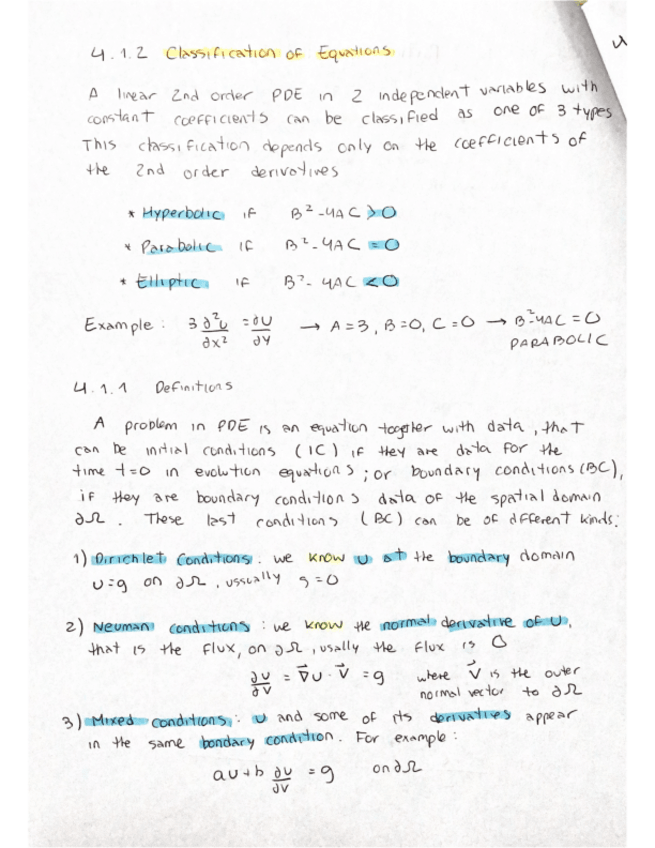 4.1.2 Classification of Equations
A linear 2nd order PDE in 2 independent variables with
constant coefficients can be classified as one of 3 types
This classification depends only on the coefficients of
the 2nd order derivatives
* Hyperbolic if B² - 4AC > 0
* Parabolic if B² - 4AC = 0
* Elliptic if B² - 4AC < 0
Example : 3 ∂²u/∂x² = ∂u/∂y → A = 3, B = 0, C = 0 → B² - 4AC = 0
PARABOLIC
4.1.1 Definitions
A problem in PDE is an equation together with data, that
can be initial conditions (IC) if they are data for the
time t=0 in evolution equations ; or boundary conditions (BC),
if they are boundary conditions data of the spatial domain
∂Ω. These last conditions (BC) can be of different kinds:
1) Dirichlet Conditions: we know u at the boundary domain
u=g on ∂Ω, ussually g=0
2) Neuman conditions : we know the normal derivative of u,
that is the flux, on ∂Ω, usally the flux is 0
∂u/∂v = ∇⃗u · v⃗ = g where v⃗ is the outer
normal vector to ∂Ω
3) Mixed conditions: u and some of its derivatives appear
in the same bondary condition. For example :
au + b ∂u/∂v = g on ∂Ω